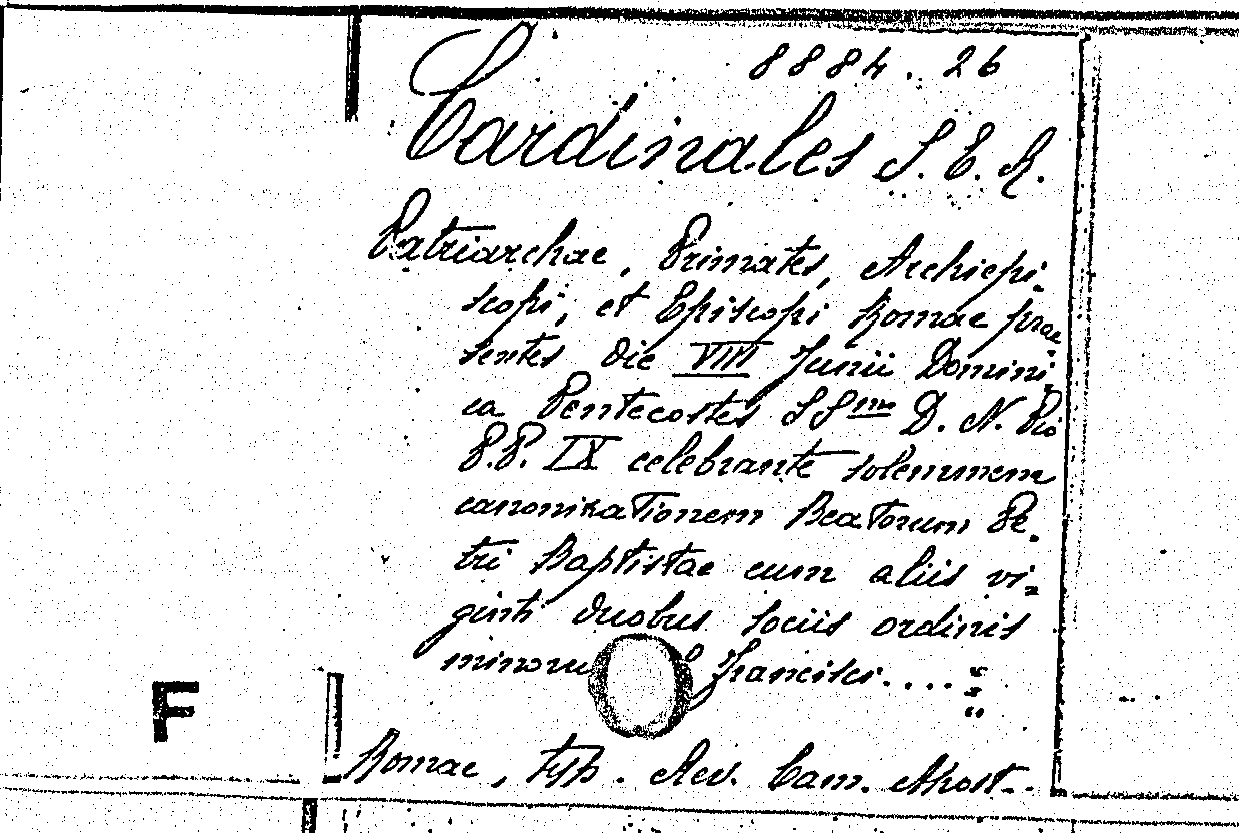 8884.26
Cardinales S. E. R.
Patriarchae, Primates, Archiepi-
scopi, et Episcopi Romae prae
sentes die VIII Junii Domini-
ca Pentecostes SSmo D. N. Pio
P.P. IX celebrante solemnem
canonizationem Beatorum Pe-
tri Baptistae cum aliis vi-
ginti duobus sociis ordinis
minoru Francisci....
F
Romae, typ. Rev. Cam. Apost..